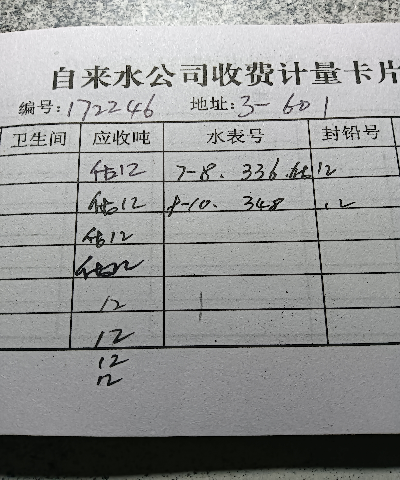 自来水公司收费计量卡片
编号:172246 地址:3-601
卫生间 应收吨 水表号 封铅号
估12 7-8. 336.估12
估12 8-10. 348 .12
估12
估12
12
12
12
12